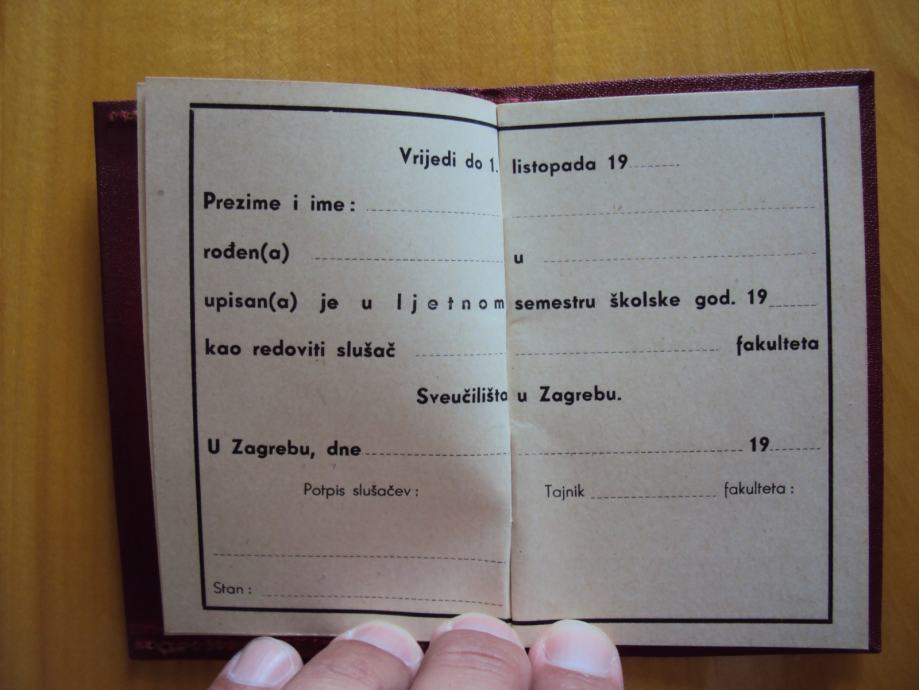 Vrijedi do 1. listopada 19
Prezime i ime:
rođen(a) u
upisan(a) je u ljetnom semestru školske god. 19
kao redoviti slušač fakulteta
Sveučilišta u Zagrebu.
U Zagrebu, dne 19
Potpis slušačev: Tajnik fakulteta:
Stan: